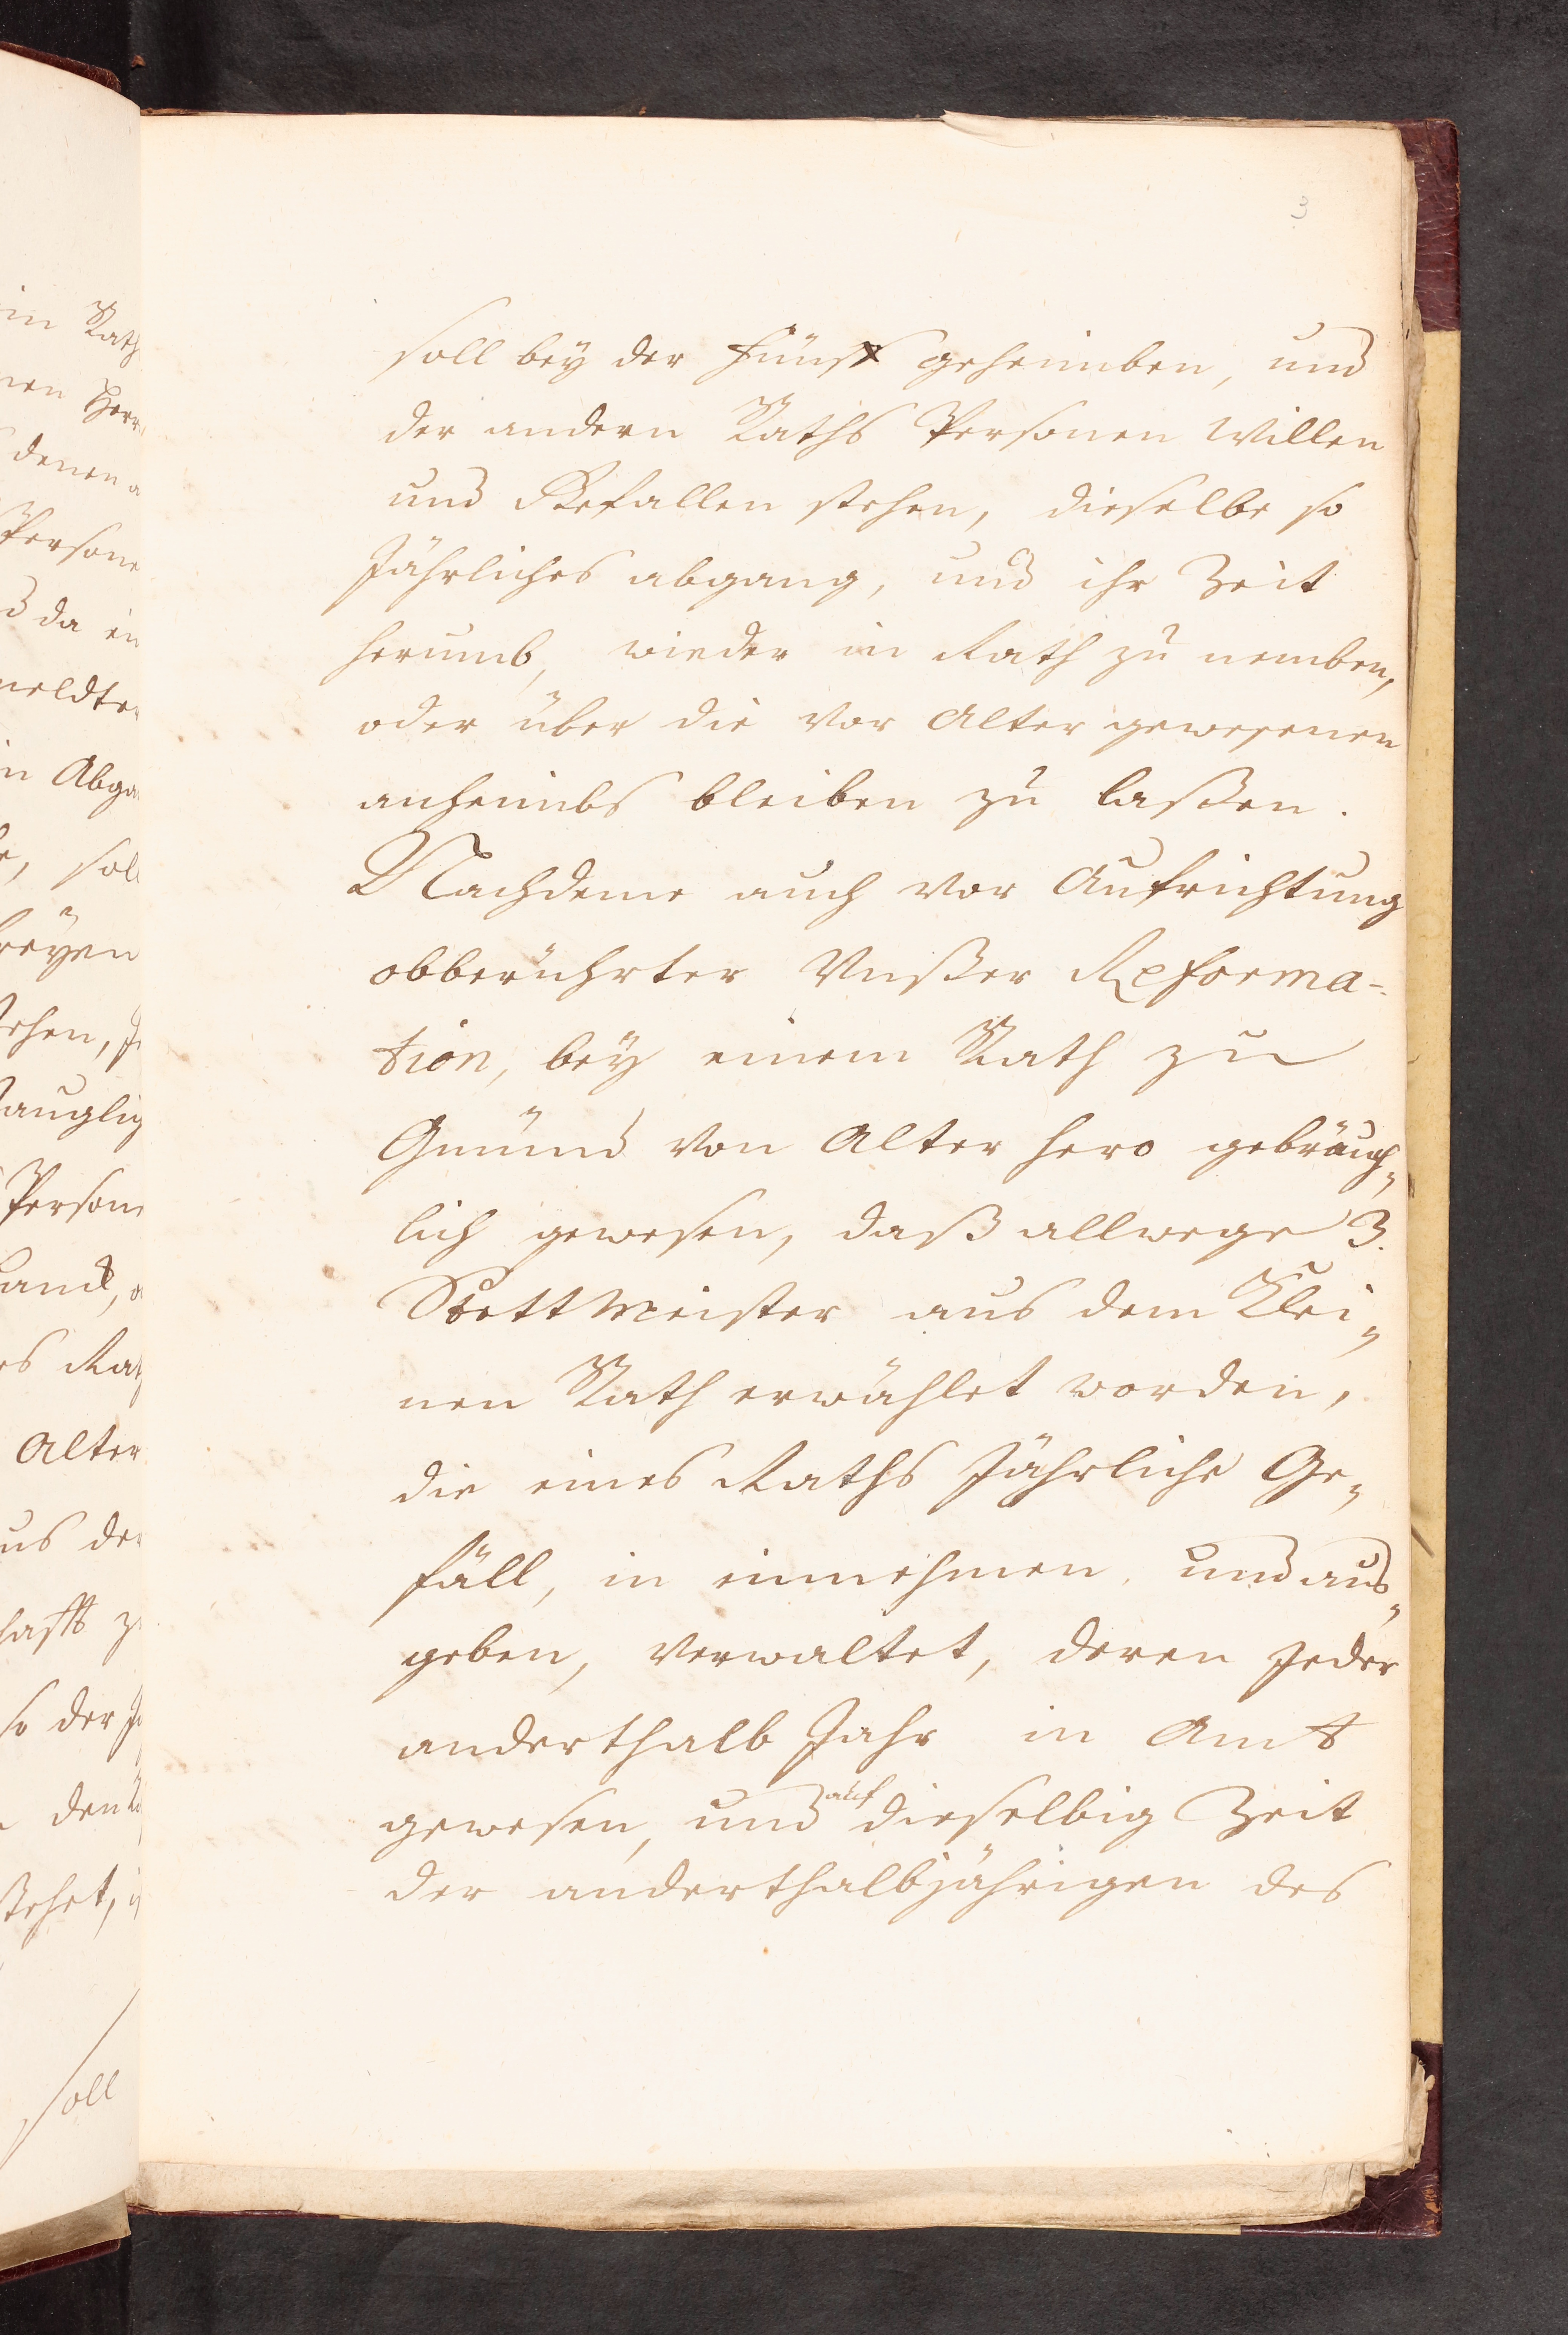 3
soll bey der fünff geheimben, und
der andern Raths Personen Willen
und Gefallen stehen, dieselbe so
Jährliches abgang, und ihr Zeit
herumb, wieder in Rath zu nemben,
oder über die Vor Alter gewesenen
anheimbs bleiben zu laßen.
Nachdeme auch Vor Aufrichtung
obberührter Unßer Reforma-
tion, bey einem Rath zu
Gmünd Von Alter hero gebräuch„
lich gewesen, daß allwege 3.
StettMeister aus dem Klei„
nen Rath erwählet worden,
die eines Raths Jährliche Ge„
fäll, in einnehmen, und aus„
geben, Verwaltet, deren Jeder
anderthalb Jahr in Amt
gewesen, und auf dieselbig Zeit
der anderthalbjährigen des
in Rath
denen
Persone
da ein
meldter
in Abga
, soll
Person
es Rath
Alter
us der
so der
stehet,
soll